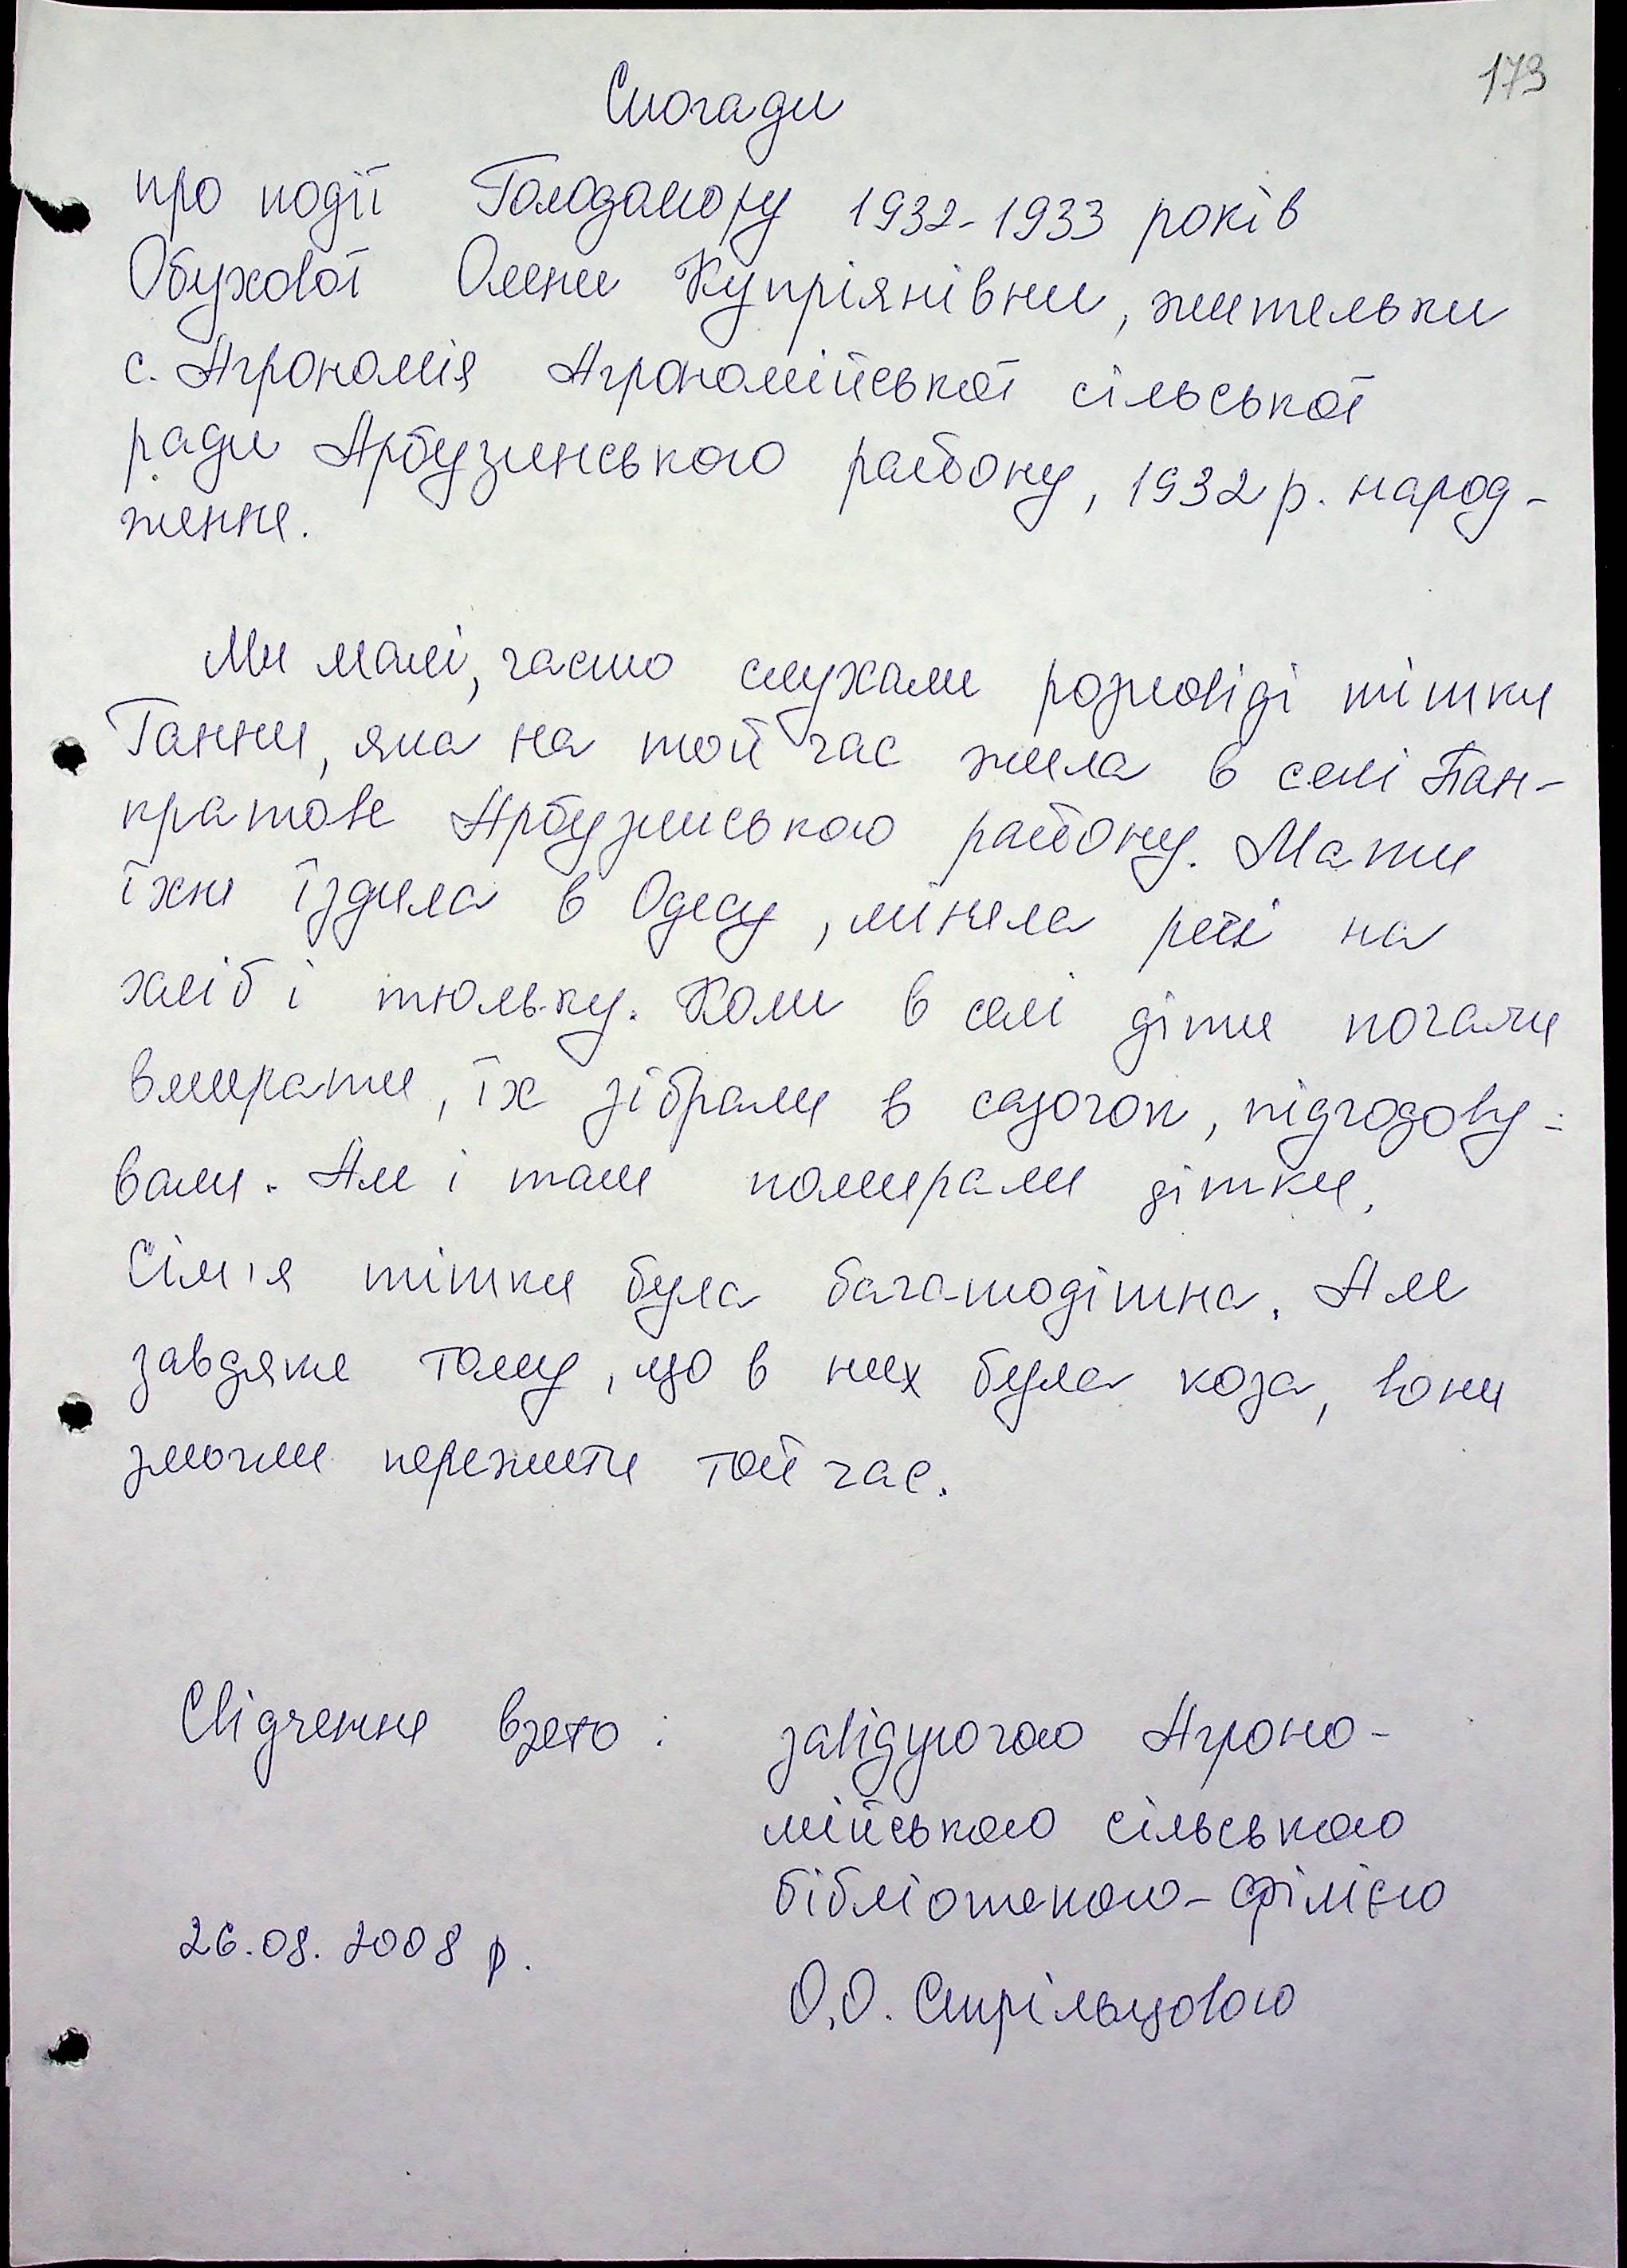 173
Спогади
про події Голодомору 1932-1933 років
Обухової Олени Купріянівни, жительки
с. Агрономія Агрономійської сільської
ради Арбузинського району, 1932 р. народ-
ження.
Ми малі, часто слухали розповіді тітки
Ганни, яка на той час жила в селі Пан-
кратове Арбузинського району. Мати
їхня їздила в Одесу, міняла речі на
хліб і тюльку. Коли в селі діти почали
вмирати, їх зібрали в садочок, підгодову-
вали. Але і там помирали дітки.
Сім'я тітки була багатодітна. Але
завдяки тому, що в них була коза, вони
змогли пережити той час.
Свідчення взято: завідуючою Агроно-
мійською сільською
бібліотекою-філією
26.08.2008 р.
О.О. Стрільцовою